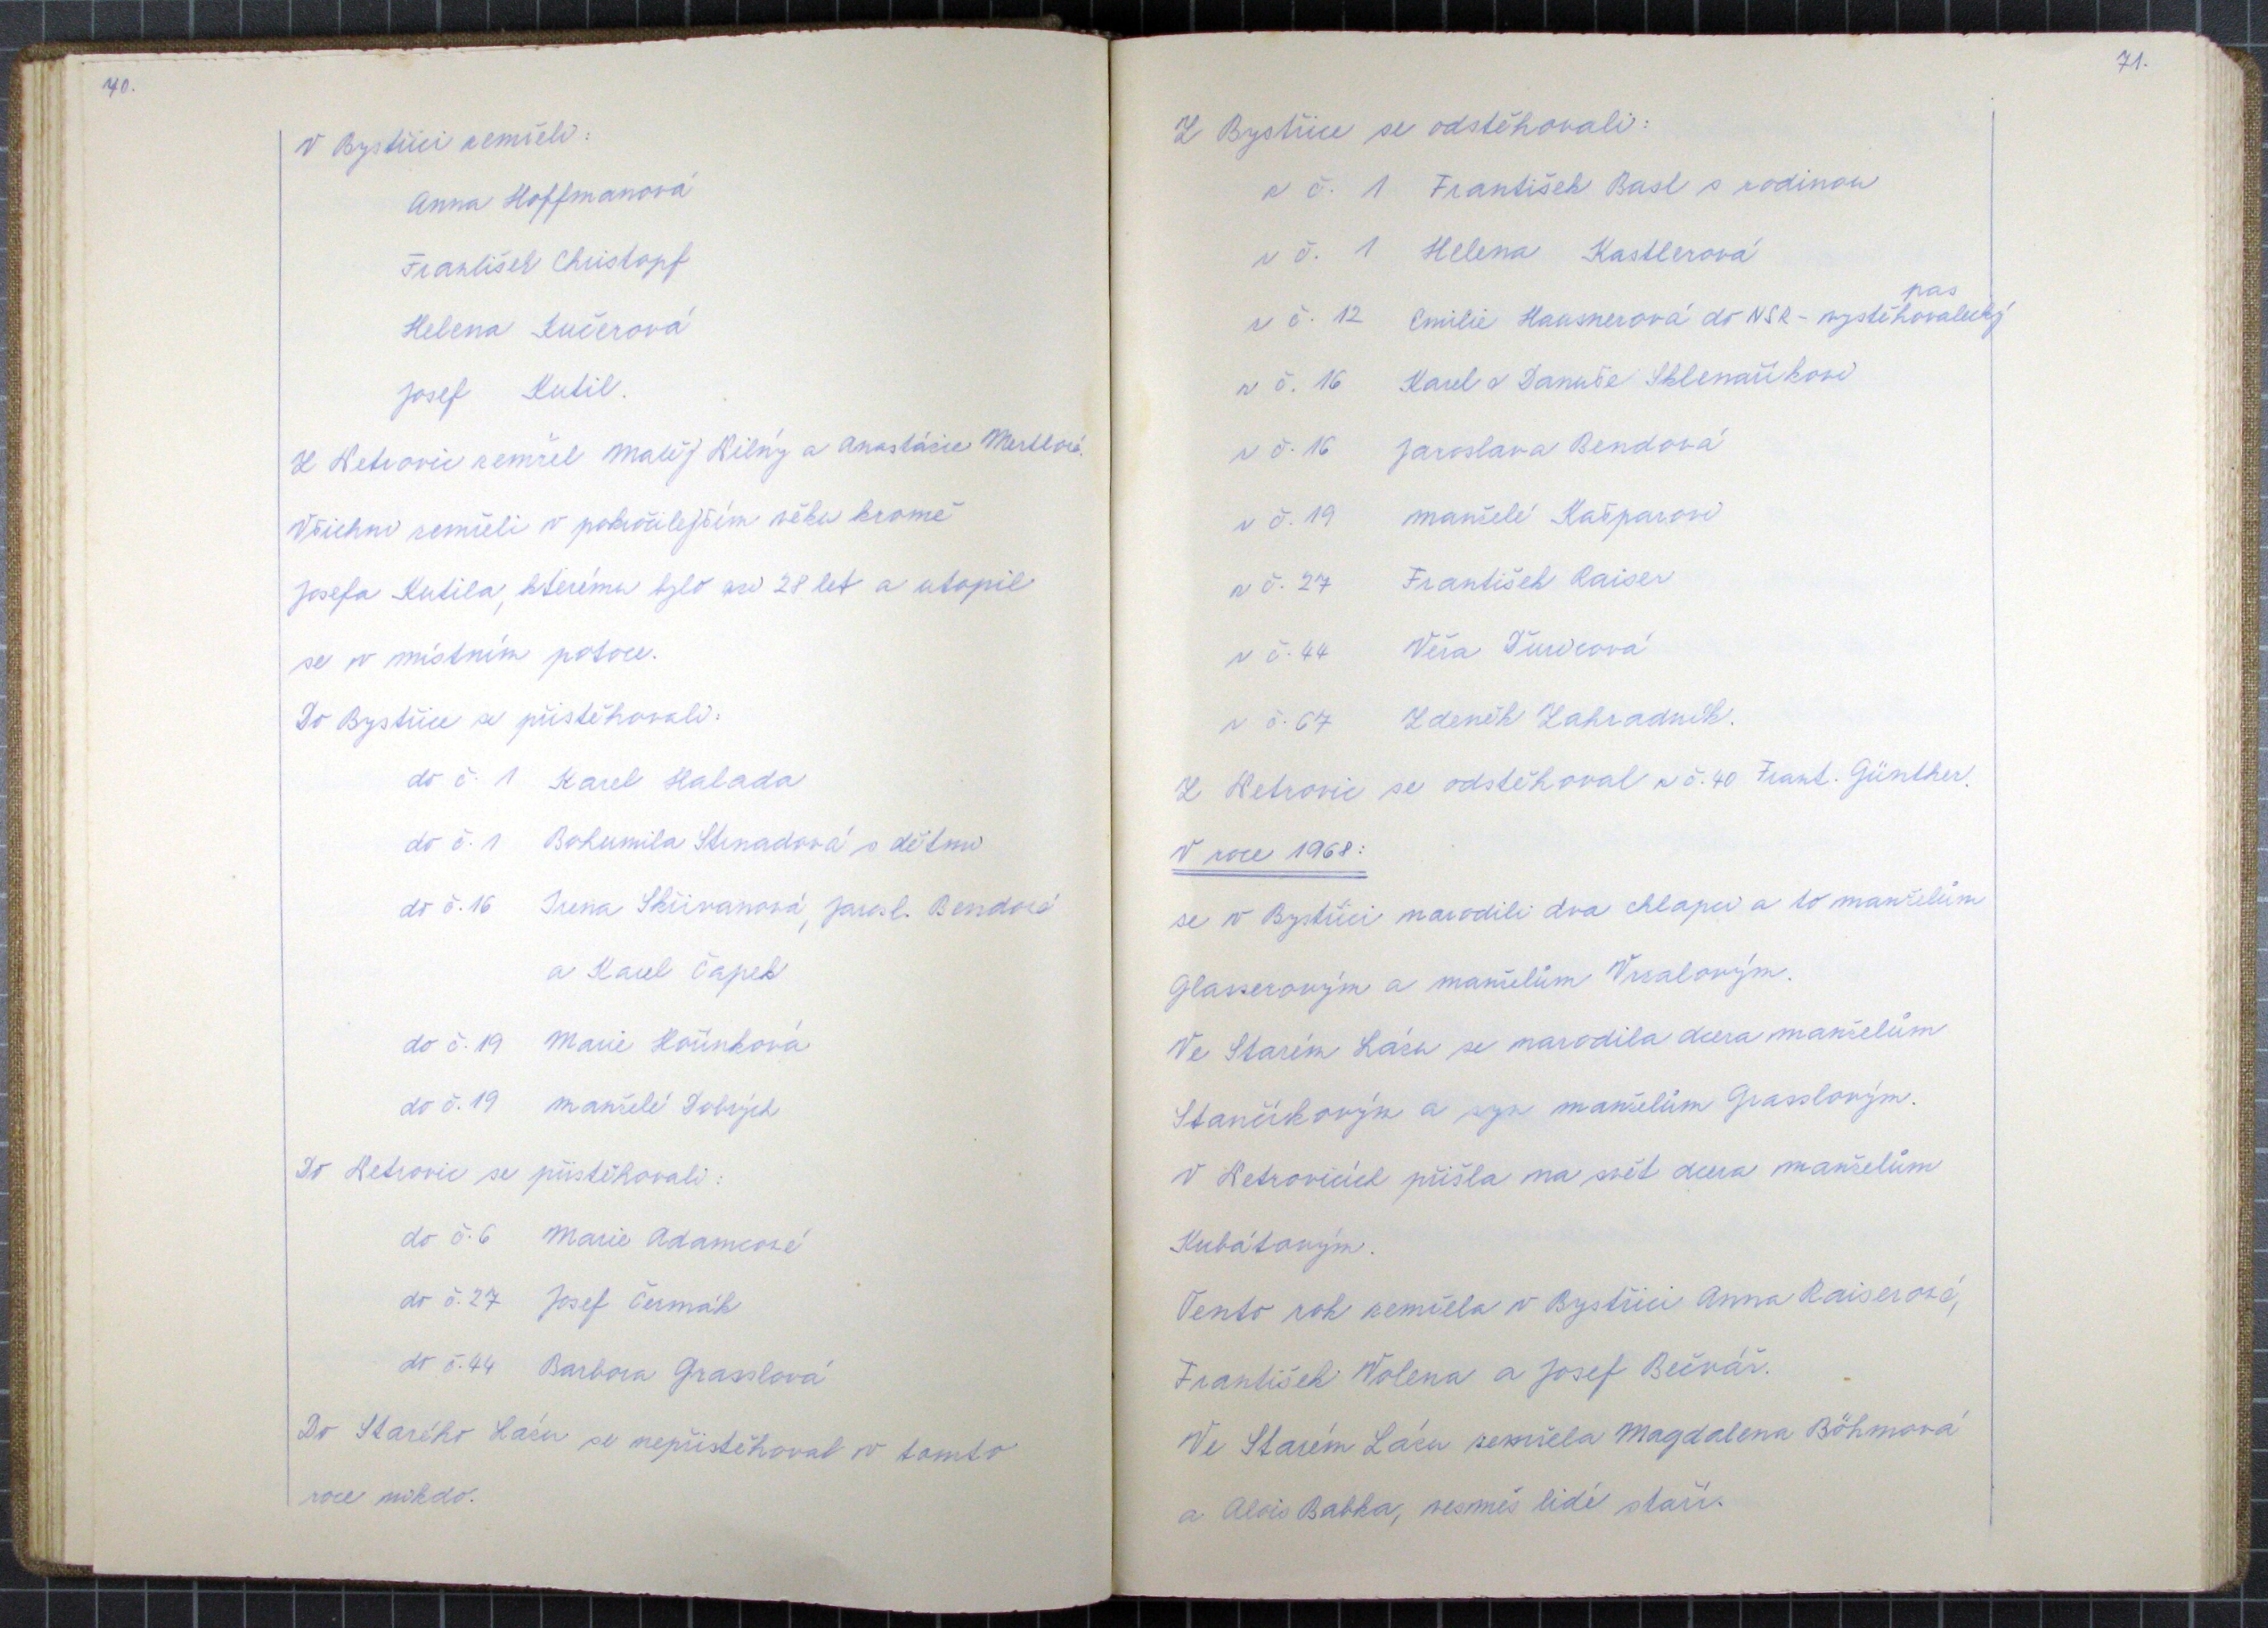 70.
V Bystřici zemřeli:
Anna Hoffmanová
František Christopf
Helena Kučerová
Josef Kutil.
Z Petrovic zemřel Matěj Vilný a Anastázie Mertlová.
Všichni zemřeli v pokročilejším věku kromě
Josefa Kutila, kterému bylo asi 28 let a utopil
se v místním potoce.
Do Bystřice se přistěhovali:
do č. 1 Karel Halada
do č. 1 Bohumila Strnadová s dětmi
do č. 16 Irena Skřivanová, Jarosl. Bendová
a Karel Čapek
do č. 19 Marie Hořínková
do č. 19 manželé Dobrých
Do Petrovic se přistěhovali:
do č. 6 Marie Adamcová
do č. 27 Josef Čermák
do č. 44 Barbora Grasslová
Do Starého Lázu se nepřistěhoval v tomto
roce nikdo.
71.
Z Bystřice se odstěhovali:
z č. 1 František Basl s rodinou
z č. 1 Helena Kastlerová
pas
z č. 12 Emilie Hausnerová do NSR - vystěhovalecký
z č. 16 Karel a Danuše Sklenaříkovi
z č. 16 Jaroslava Bendová
z č. 19 manželé Kašparovi
z č. 27 František Raiser
z č. 44 Věra
z č. 67 Zdeněk Zahradník.
Z Petrovic se odstěhoval z č. 40 Frant. Günther.
V roce 1968:
se v Bystřici narodili dva chlapci a to manželům
Glasserovým a manželům Vrzalovým.
Ve Starém Lázu se narodila dcera manželům
Stančíkovým a syn manželům Grasslovým.
V Petrovicích přišla na svět dcera manželům
Kubátovým.
Tento rok zemřela v Bystřici Anna Raiserová,
František Volena a Josef Bečvář.
Ve Starém Lázu zemřela Magdalena Böhmová
a Alois Babka, vesměs lidé staří.